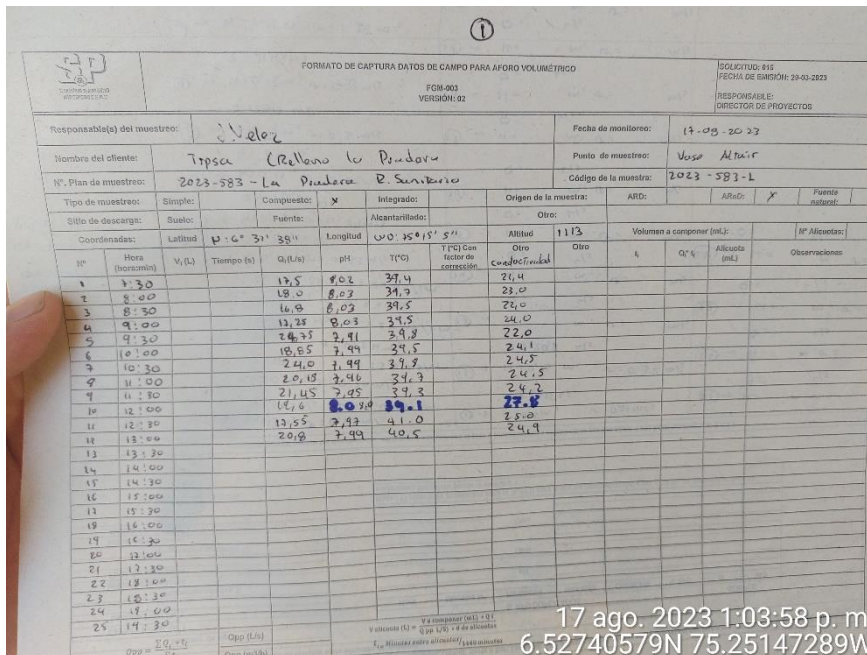 ①
FORMATO DE CAPTURA DATOS DE CAMPO PARA AFORO VOLUMÉTRICO
FGM-003
VERSIÓN: 02
SOLICITUD: 015
FECHA DE EMISIÓN: 29-03-2023
RESPONSABLE:
DIRECTOR DE PROYECTOS
Responsable(s) del muestreo: J. Velez Fecha de monitoreo: 17-08-2023
Nombre del cliente: Tipsa (Relleno la Pradera Punto de muestreo: Vaso Altair
Nº. Plan de muestreo: 2023-583-La Pradera R. Sanitario Código de la muestra: 2023-583-L
Tipo de muestreo: Simple: Compuesto: X Integrado: Origen de la muestra: ARD: ARnD: X Fuente natural:
Sitio de descarga: Suelo: Fuente: Alcantarillado: Otro:
Coordenadas: Latitud N: 6° 31' 38" Longitud WO: 75° 15' 5" Altitud 1113 Volumen a componer (mL): Nº Alicuotas:
Nº Hora (hora:min) V₁ (L) Tiempo (s) Q₁(L/s) pH T(°C) T (°C) Con factor de corrección Otro conductividad Otro tᵢ Qᵢ*tᵢ Alícuota (mL) Observaciones
1 7:30 17,5 8,02 39,4 21,4
2 8:00 18.0 8,03 39,7 23,0
3 8:30 16,8 8,03 39,5 22,0
4 9:00 17,25 8,03 39,5 24,0
5 9:30 7,91 39,8 22,0
6 10:00 18,85 7,99 39,5 24,1
7 10:30 24,0 7,99 39,8 24,5
8 11:00 20,15 7,96 39,7 24,5
9 11:30 21,45 7,95 39,3 24,2
10 12:00 19,6 8.0 39.1 27.8
11 12:30 17,55 7,97 41.0 25.0
12 13:00 20,8 7,99 40,5 24,9
13 13:30
14 14:00
15 14:30
16 15:00
17 15:30
18 16:00
19 16:30
20 17:00
21 17:30
22 18:00
23 18:30
24 19:00
25 19:30
Qpp (L/s)
17 ago. 2023 1:03:58 p. m.
6.52740579N 75.25147289W